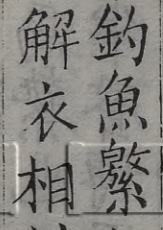 釣魚繁
解衣相